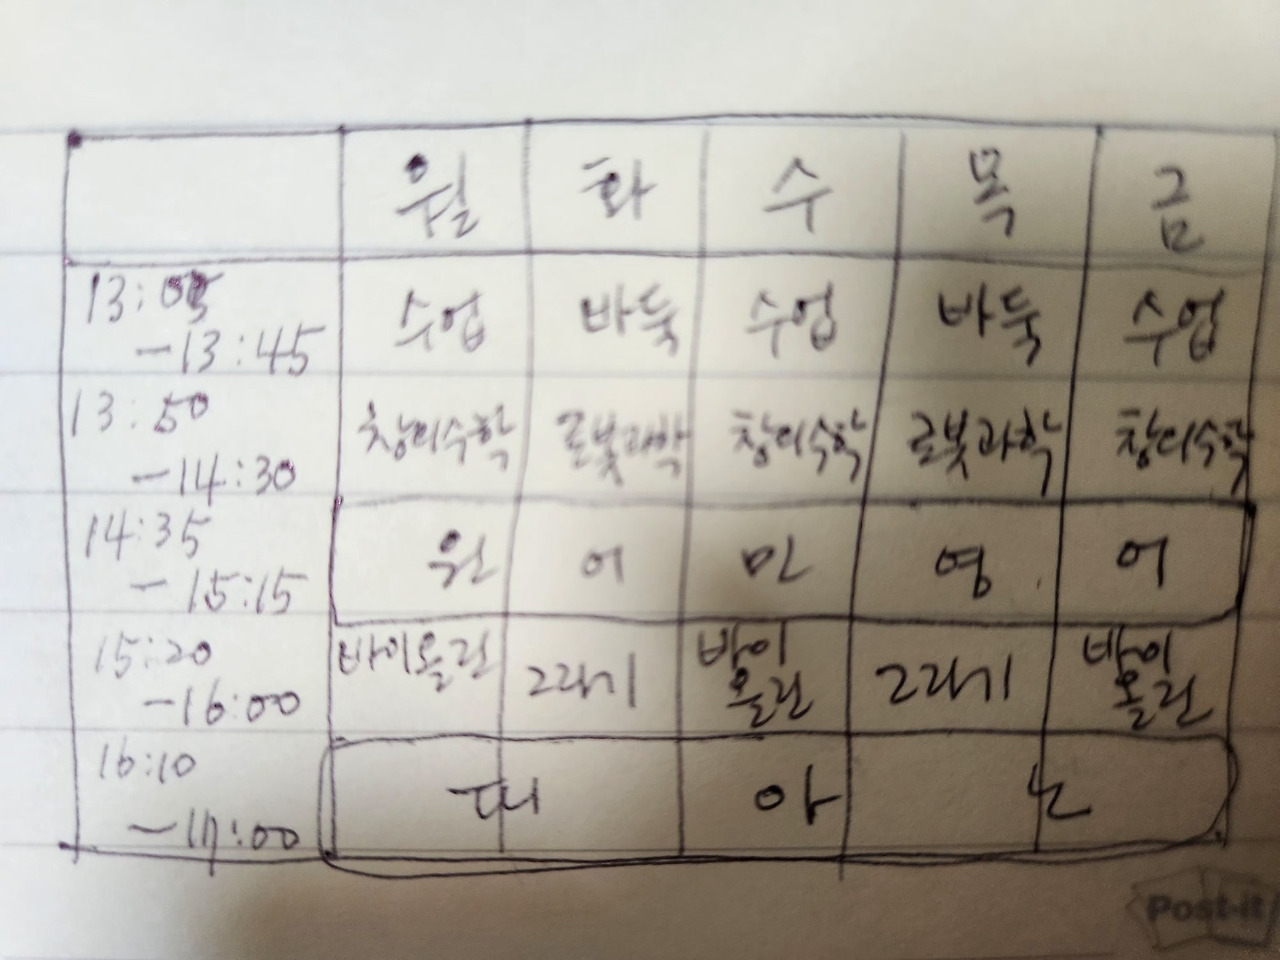 월 화 수 목 금
13:05 수업 바둑 수업 바둑 수업
-13:45
13:50 창의수학 로봇과학 창의수학 로봇과학 창의수학
-14:30
14:35 원 어 민 영 어
-15:15
15:20 바이올린 그리기 바이 그리기 바이
-16:00 올린 올린
16:10 피 아 노
-17:00
Post-it